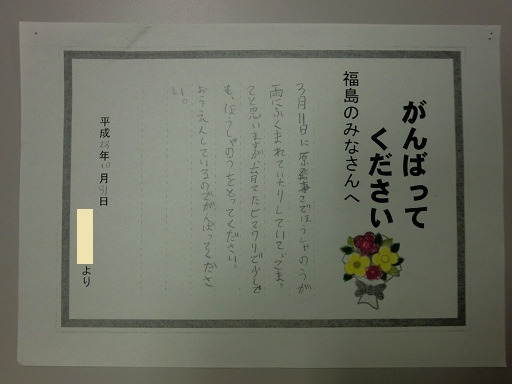 がんばって
ください
福島のみなさんへ
3月11日に原発事こでほうしゃのうが
雨にふくまれていたりしていて、こまっ
てと思いますが、育てたヒマワリで少しで
も、ほうしゃのうをとってください。
おうえんしているのでがんばってくださ
い。
平成23年10月31日
より